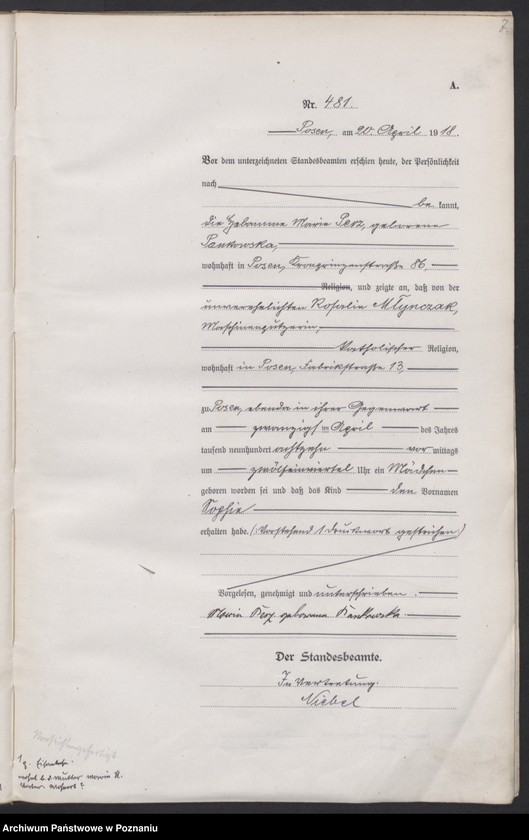 A.
Nr. 481.
Posen, am 20. April 1918.
Vor dem unterzeichneten Standesbeamten erschien heute, der Persönlichkeit
nach
be kannt,
die Hebamme Marie Perz, geborene
Pankowska,
wohnhaft in Posen, Kronprinzenstraße 86,
Religion, und zeigte an, daß von der
unverehelichten Rosalie Młynczak,
Maschinenputzerin,
katholischer Religion,
wohnhaft in Posen, Fabrikstraße 13,
zu Posen, ebenda in ihrer Gegenwart
am zwanzigsten April des Jahres
tausend neunhundert achtzehn vor mittags
um zwölfeinviertel Uhr ein Mädchen
geboren worden sei und daß das Kind den Vornamen
Sophie
erhalten habe. (Vorstehend 1 Druckwort gestrichen)
Vorgelesen, genehmigt und unterschrieben.
Maria geborene
Der Standesbeamte.
In Vertretung.
Niebel
d. Mutter
Archiwum Państwowe w Poznaniu